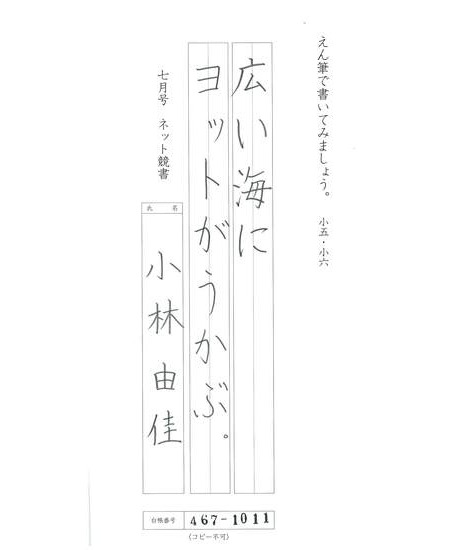 えん筆で書いてみましょう。 小五・小六
広い海に
ヨットがうかぶ。
七月号 ネット競書
氏名
小林由佳
台帳番号 467-1011
(コピー不可)